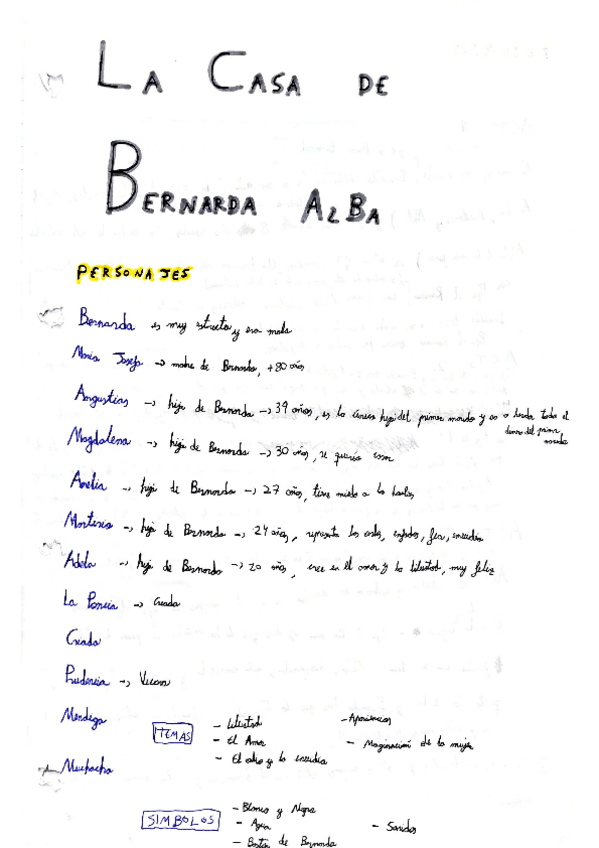 LA CASA DE
BERNARDA ALBA
PERSONAJES
Bernarda es muy estricta y era mala
Maria Josefa -> madre de Bernarda, +80 años
Angustias -> hija de Bernarda -> 39 años, es la única hija del primer marido y hereda todo el
dinero del primer
marido
Magdalena -> hija de Bernarda -> 30 años, se quería casar
Amelia -> hija de Bernarda -> 27 años, tiene miedo a los
Martirio -> hija de Bernarda -> 24 años, representa los celos, fea, envidia
Adela -> hija de Bernarda -> 20 años, cree en el amor y la libertad, muy feliz
La Poncia -> Criada
Criada
Prudencia -> Vecina
Mendiga
Muchacha
TEMAS
- Libertad
- El Amor
- El odio y la envidia
- Apariencias
- Marginación de la mujer
SIMBOLOS
- Blanco y Negro
- Agua
- Bastón de Bernarda
- Sonidos